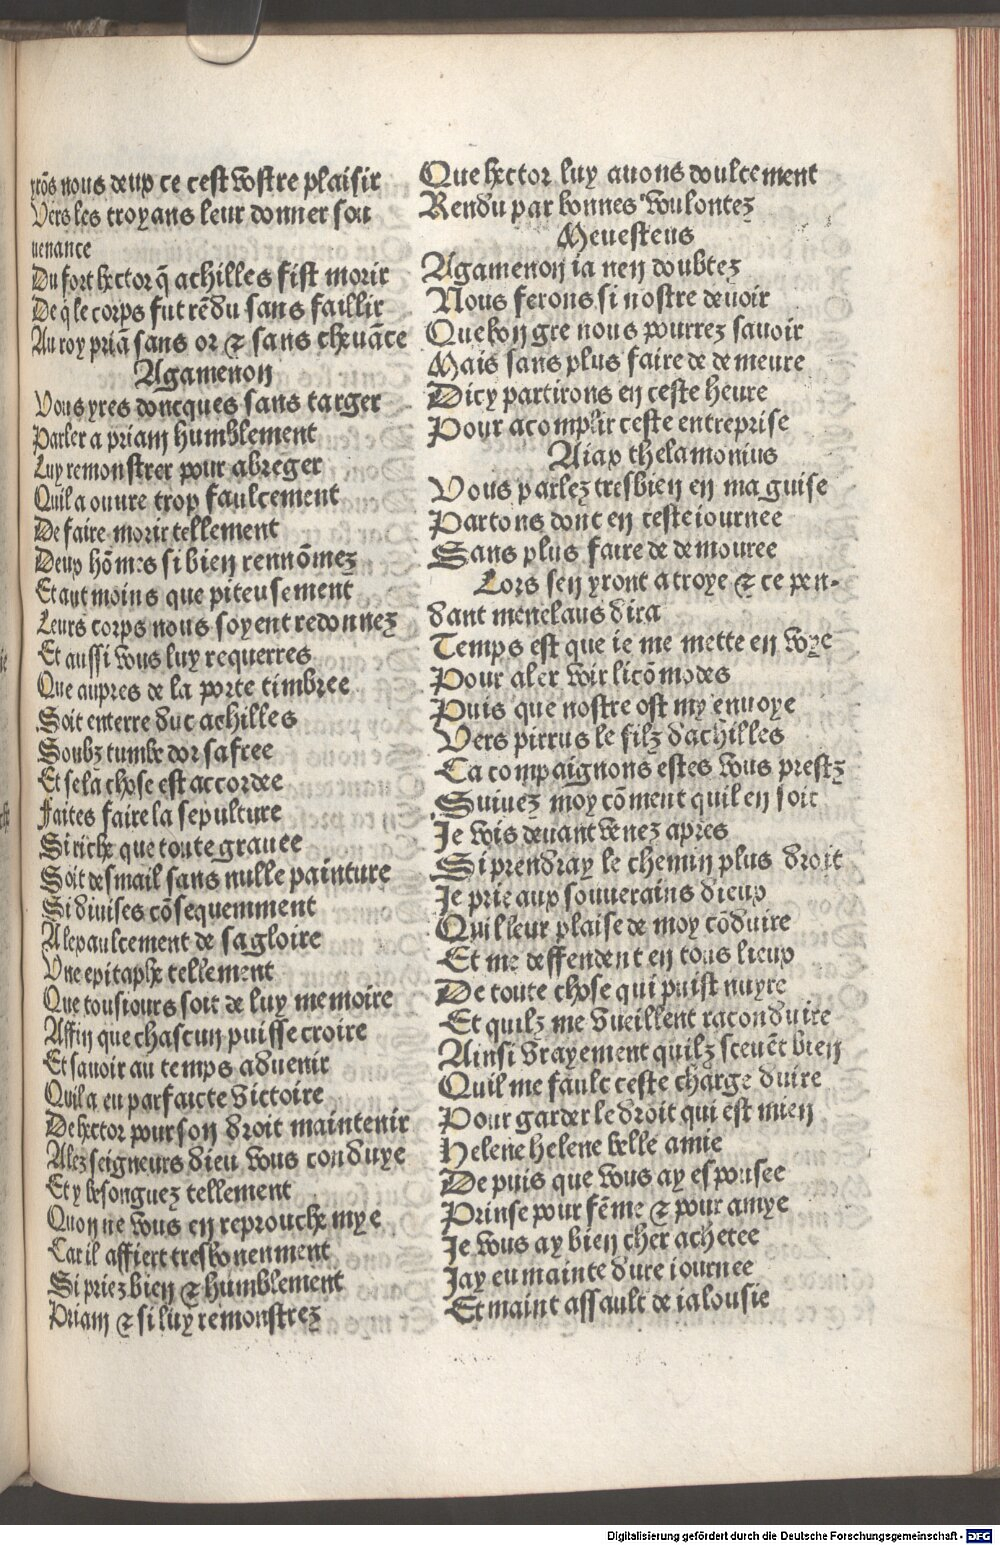 nous deux ce cest vostre plaisir
Vers les troyans leur donner sou
uenance
Du fort hector q̃ achilles fist morir
De q̃ le corps fut rẽdu sans faillir
Au roy priã sans or ⁊ sans cheuãce
Agamenon
Vous yres doncques sans targer
Parler a priam humblement
Luy remonstrer pour abreger
Quil a ouure trop faulcement
De faire morir tellement
Deux hõmes si bien rennõmez
Et aut moins que piteusement
Leurs corps nous soyent redonnez
Et aussi vous luy requerres
Que aupres de la porte timbree
Soit enterre duc achilles
Soubz tumbe dor safree
Et se la chose est accordee
Faites faire la sepulture
Si riche que toute grauee
Soit desmail sans nulle painture
Si diuises cõsequemment
A lexaulcement de sa gloire
Vne epitaphe tellement
Que tousiours soit de luy memoire
Affin que chascun puisse croire
Et sauoir au temps aduenir
Quil a eu parfaicte victoire
De hector pour son droit maintenir
Alez seigneurs dieu vous conduye
Et y besonguez tellement
Quon ne vous en reprouche mye
Car il affiert tresbonenment
Si priez bien ⁊ humblement
Priam ⁊ si luy remonstrez
Que hector luy auons doulcement
Rendu par bonnes voulontez
Meuesteus
Agamenon ia nen doubtez
Nous ferons si nostre deuoir
Que bon gre nous pourrez sauoir
Mais sans plus faire de demeure
Dicy partirons en ceste heure
Pour acomplir ceste entreprise
Aiax thelamonius
Vous parlez tresbien en ma guise
Partons dont en ceste iournee
Sans plus faire de demouree
Lors sen yront a troye ⁊ ce pen-
dant menelaus dira
Temps est que ie me mette en voye
Pour aler voir licõmodes
Puis que nostre ost my enuoye
Vers pirrus le filz dachilles
Ca compaignons estes vous prestz
Suiuez moy cõment quil en soit
Je vois deuant venez apres
Si prendray le chemin plus droit
Je prie aux souuerains dieux
Quil leur plaise de moy cõduire
Et me deffendent en tous lieux
De toute chose qui puist nuyre
Et quilz me vueillent raconduire
Ainsi vrayement quilz sceuẽt bien
Quil me fault ceste charge duire
Pour garder le droit qui est mien
Helene helene belle amie
De puis que vous ay espousee
Prinse pour fẽme ⁊ pour amye
Je vous ay bien cher achetee
Jay eu mainte dure iournee
Et maint assault de ialousie
Digitalisierung gefördert durch die Deutsche Forschungsgemeinschaft - DFG